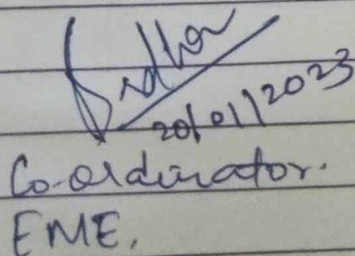 20/01/2023
Co-ordinator.
EME.